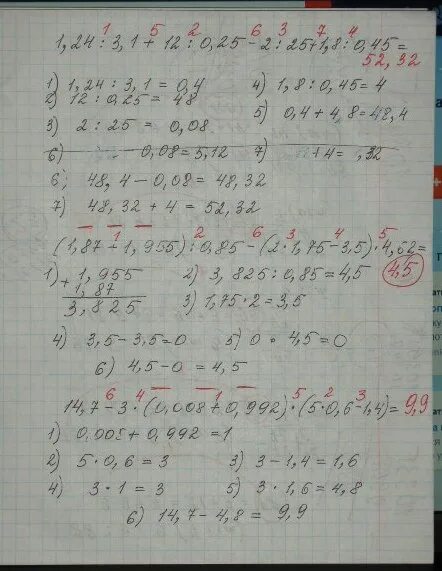 1 5 2 6 3 7 4
1,24 : 3,1 + 12 : 0,25 - 2 : 25 + 1,8 : 0,45 =
52,32
1) 1,24 : 3,1 = 0,4 4) 1,8 : 0,45 = 4
2) 12 : 0,25 = 48 5) 0,4 + 4,8 = 48,4
3) 2 : 25 = 0,08
6) 0,08 = 5,12 7) + 4 = ,32
6) 48,4 - 0,08 = 48,32
7) 48,32 + 4 = 52,32
1 2 6 3 4 5
(1,87 + 1,955) : 0,85 - (2 · 1,75 - 3,5) · 4,62 =
4,5
1) + 1,955 2) 3,825 : 0,85 = 4,5
1,87
3,825 3) 1,75 · 2 = 3,5
4) 3,5 - 3,5 = 0 5) 0 · 4,5 = 0
6) 4,5 - 0 = 4,5
6 4 1 5 2 3
14,7 - 3 · (0,008 + 0,992) · (5 · 0,6 - 1,4) = 9,9
1) 0,008 + 0,992 = 1
2) 5 · 0,6 = 3 3) 3 - 1,4 = 1,6
4) 3 · 1 = 3 5) 3 · 1,6 = 4,8
6) 14,7 - 4,8 = 9,9